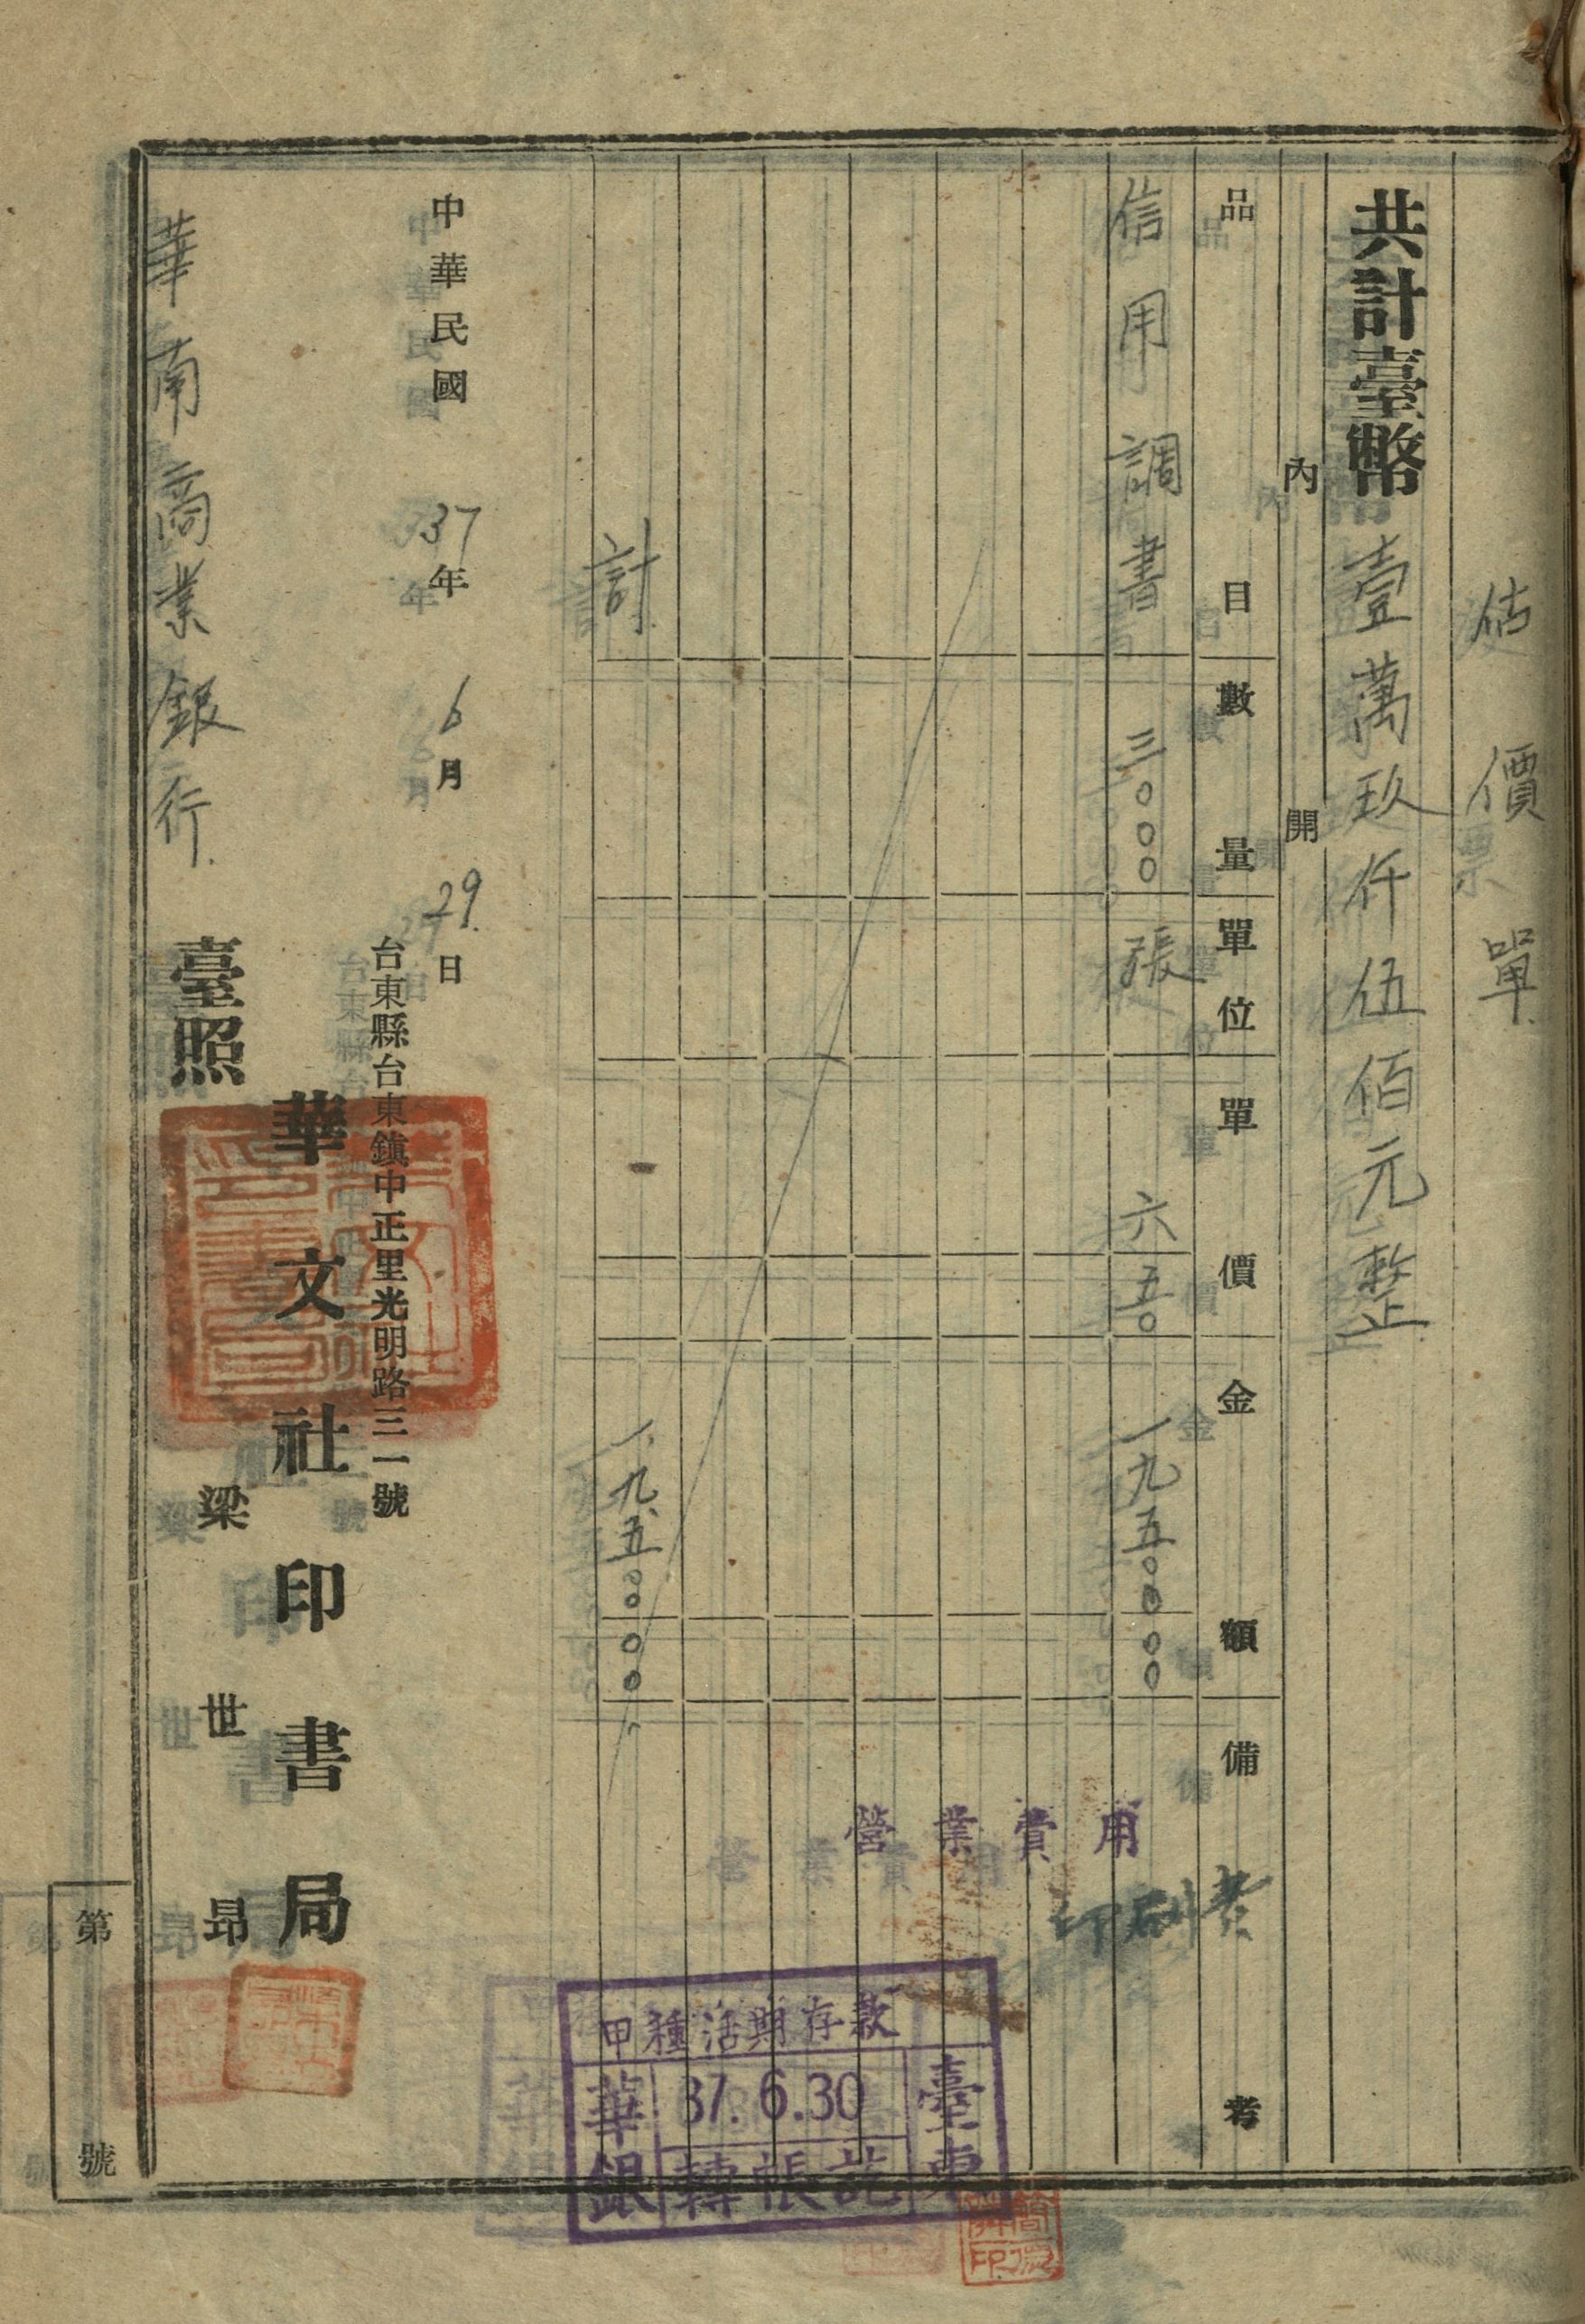 估價單
共計臺幣壹萬玖仟伍佰元整
內開
品目 數量 單位 單價 金額 備考
信用調書 三〇〇〇 張 六五〇 一九五〇〇〇〇
計 一、九、五〇〇〇〇
營業費用
印刷費
中華民國37年6月29日
台東縣台東鎮中正里光明路三一號
華文社印書局
梁世昂
華南商業銀行 臺照
第 號
甲種活期存款
華銀
37.6.30
轉帳訖
臺東